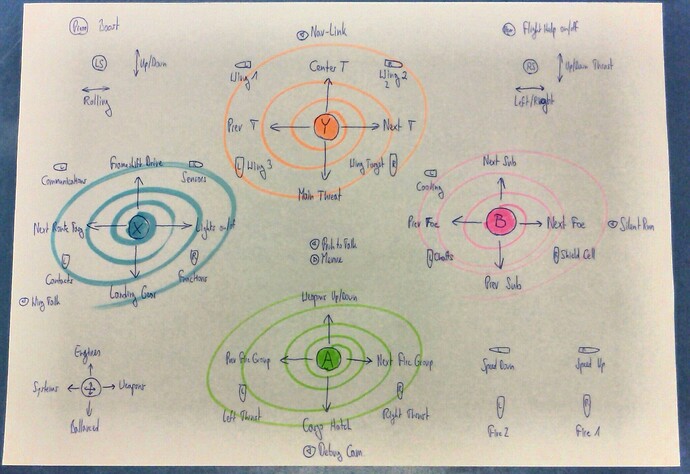 Boost
Nav-Link
Flight Help on/off
LS
Up/Down
Rolling
Wing 1
Center T
Wing 2
RS
Up/Down Thrust
Left/Right
Prev T
Y
Next T
Wing 3
Wing Target
Main Threat
Communications
Frameshift Drive
Sensors
Next Route Targ
X
Lights on/off
Contacts
Landing Gear
Functions
Wing Talk
Cooling
Next Sub
Prev Foe
B
Next Foe
Silent Run
Chaffs
Prev Sub
Shield Cell
Push to Talk
Weapons Up/Down
Prev Fire Group
A
Next Fire Group
Left Thrust
Cargo Hatch
Right Thrust
Debug Cam
Engines
Systems
Weapons
Ballanced
Speed Down
Speed Up
Fire 2
Fire 1